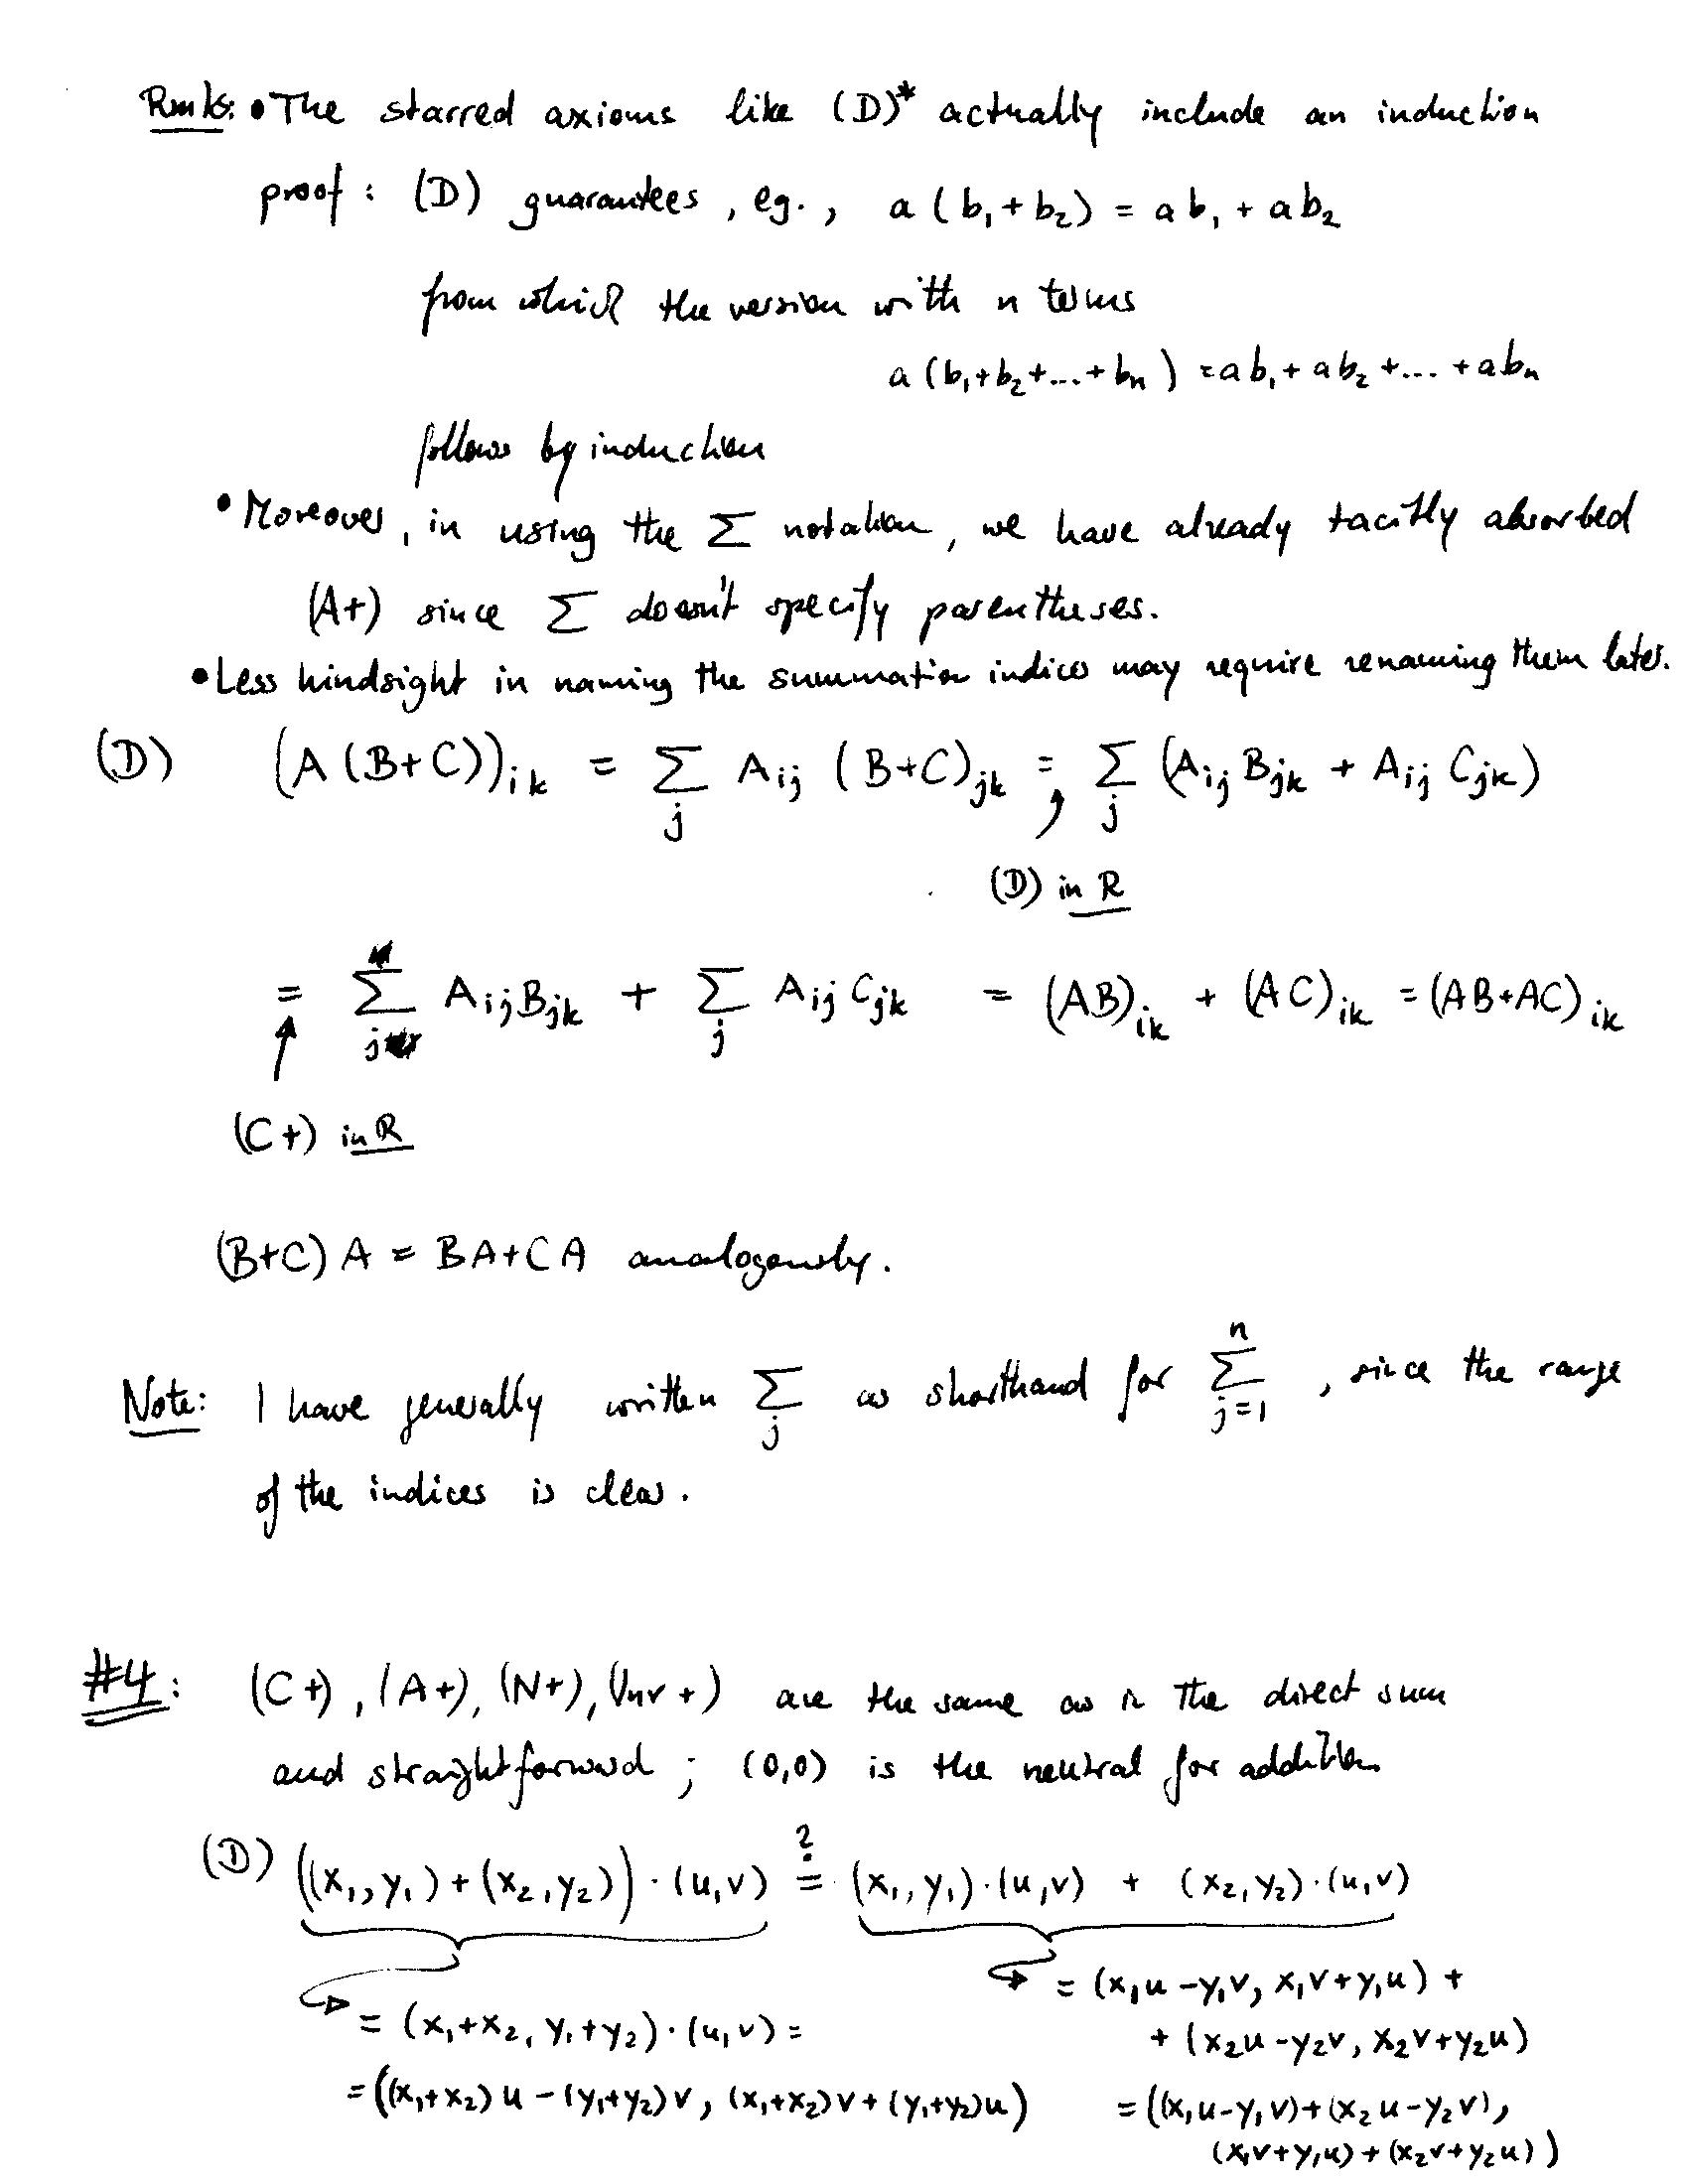 Rmks: • The starred axioms like (D)* actually include an induction
proof: (D) guarantees, eg., a(b₁+b₂) = ab₁ + ab₂
from which the version with n terms
a(b₁+b₂+...+bₙ) = ab₁ + ab₂ +... + abₙ
follows by induction
• Moreover, in using the Σ notation, we have already tacitly absorbed
(A+) since Σ doesn't specify parentheses.
• Less hindsight in naming the summation indices may require renaming them later.
(D) (A(B+C))ᵢₖ = Σⱼ Aᵢⱼ (B+C)ⱼₖ = Σⱼ (Aᵢⱼ Bⱼₖ + Aᵢⱼ Cⱼₖ)
(D) in R
= Σⱼ AᵢⱼBⱼₖ + Σⱼ Aᵢⱼ Cⱼₖ = (AB)ᵢₖ + (AC)ᵢₖ = (AB+AC)ᵢₖ
(C+) in R
(B+C)A = BA+CA analogously.
Note: I have generally written Σⱼ as shorthand for Σⱼ₌₁ⁿ, since the range
of the indices is clear.
#4: (C+), (A+), (N+), (Inv+) are the same as in the direct sum
and straightforward; (0,0) is the neutral for addition
(D) ((x₁,y₁)+(x₂,y₂))·(u,v) ≟ (x₁,y₁)·(u,v) + (x₂,y₂)·(u,v)
= (x₁u-y₁v, x₁v+y₁u) +
= (x₁+x₂, y₁+y₂)·(u,v) =
+ (x₂u-y₂v, x₂v+y₂u)
= ((x₁+x₂)u-(y₁+y₂)v, (x₁+x₂)v+(y₁+y₂)u)
= ((x₁u-y₁v)+(x₂u-y₂v),
(x₁v+y₁u)+(x₂v+y₂u))